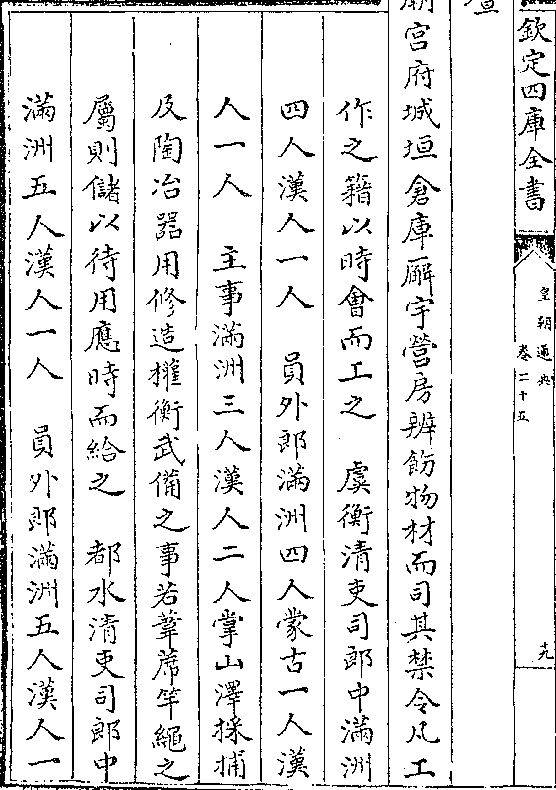 欽定四庫全書
皇朝通典
卷二十五
九
壇
廟宮府城垣倉庫廨宇營房辨飭物材而司其禁令凡工
作之籍以時會而工之　虞衡清吏司郎中滿洲
四人漢人一人　員外郎滿洲四人蒙古一人漢
人一人　主事滿洲三人漢人二人掌山澤採捕
及陶冶器用修造權衡武備之事若葦蓆竿繩之
屬則儲以待用應時而給之　都水清吏司郎中
滿洲五人漢人一人　員外郎滿洲五人漢人一